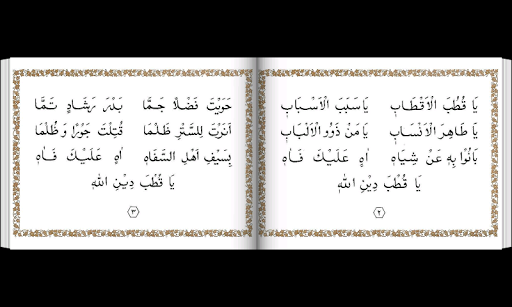 يَا قُطْبَ الْاَقْطَابِ يَا سَبَبَ الْاَسْبَابِ
يَا طَاهِرَ الْاَنْسَابِ يَا مَنْ ذَوُو الْاَلْبَابِ
بَانُوْا بِهِ عَنْ شِيَاهِ اٰهِ عَلَيْكَ فَاٰهِ
يَا قُطْبَ دِيْنِ اللهِ
٢
حَوَيْتَ فَضْلًا جَمَّا بَدْرَ رَشَادٍ تَمَّا
اَنَرْتَ لِلسَّتْرِ ظَلْمَا قُتِلْتَ جَوْرًا وَ ظُلْمَا
بِسَيْفِ اَهْلِ السَّفَاهِ اٰهِ عَلَيْكَ فَاٰهِ
يَا قُطْبَ دِيْنِ اللهِ
٣